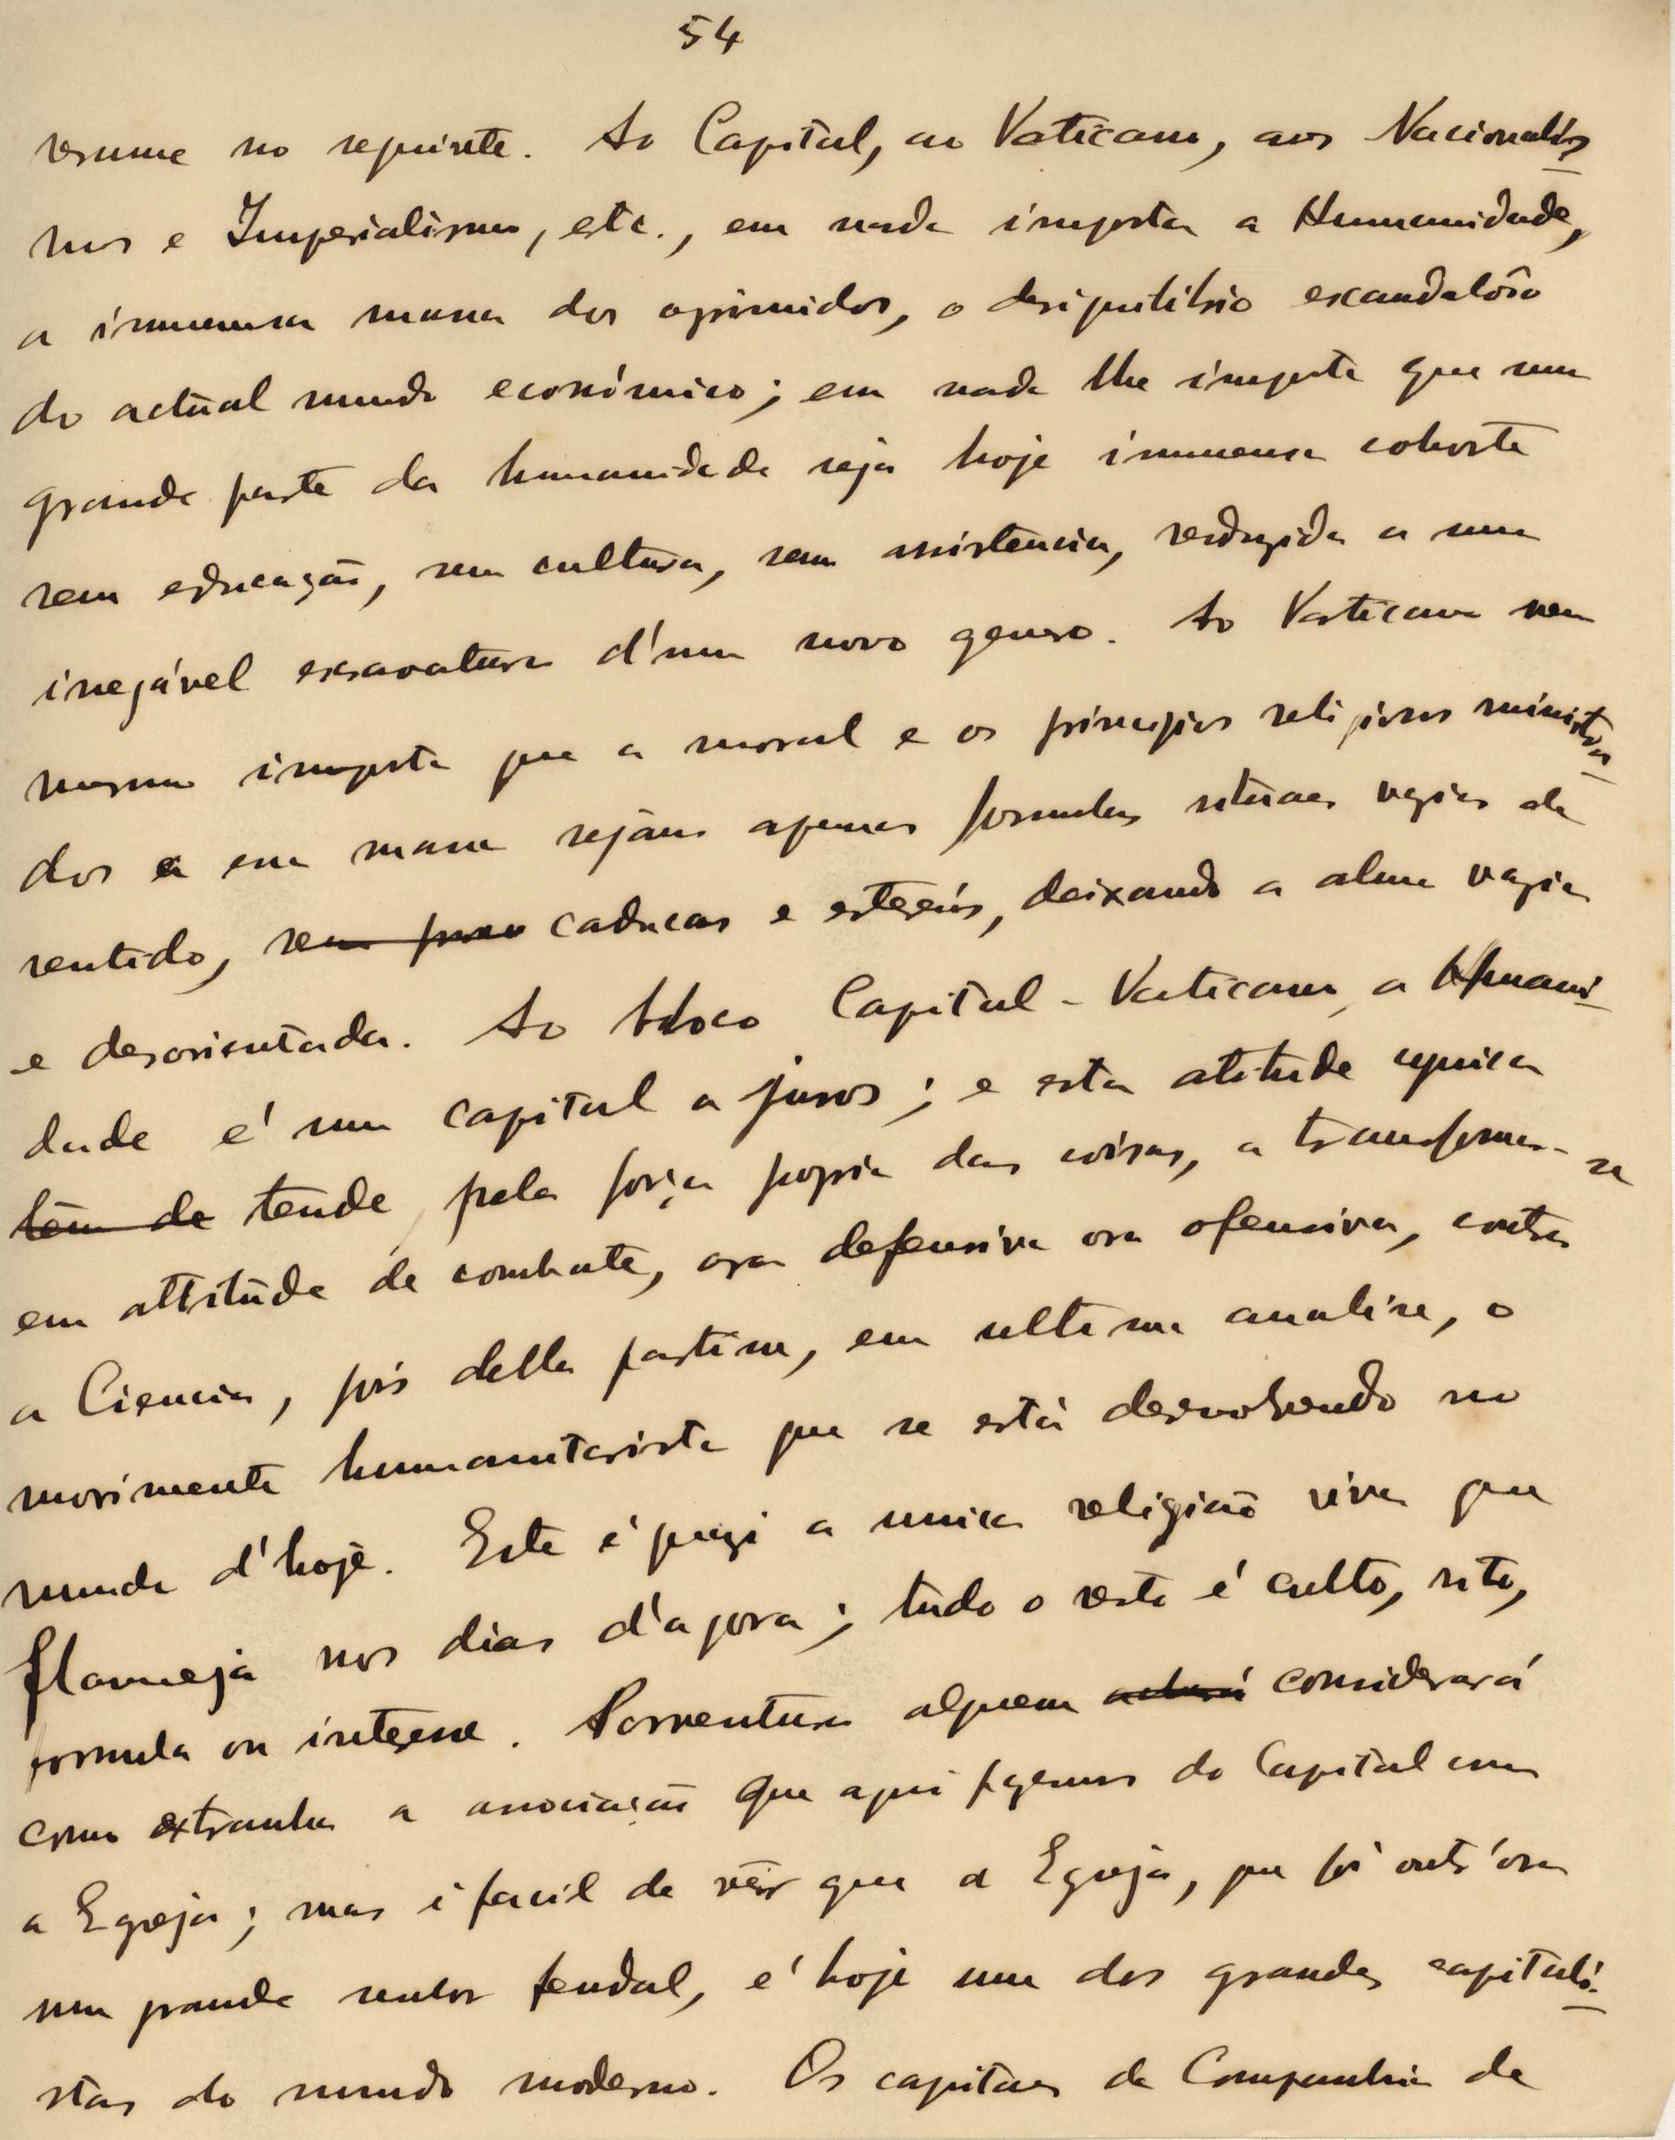 54
resume no seguinte. Ao Capital, ao Vaticano, aos Nacionalis
mos e Imperialismo, etc., em nada importa a Humanidade,
a immensa massa dos oprimidos, o desiquilibrio escandalôso
do actual mundo económico; em nada lhe importa que uma
grande parte da humanidade seja hoje immensa cohorte
sem educação, sem cultura, sem assistencia, reduzida a uma
inegável escravatura d'um novo genero. Ao Vaticano nem
mesmo importa que a moral e os principios religiosos ministra
dos a essa massa sejam apenas formulas rituaes vazias de
sentido, sem caducas e estereis, deixando a alma vazia
e desorientada. Ao bloco Capital - Vaticano, a Humani
dade é um capital a juros; e esta atitude cynica
têm de tende, pela força propria das coisas, a transformar-se
em attitude de combate, ora defensiva ora ofensiva, contra
a Ciencia, pois della partiu, em ultima analise, o
movimento humanitarista que se está desenvolvendo no
mundo d'hoje. Este é quazi a unica religião viva que
flameja nos dias d'agora; tudo o resto é culto, rito,
formula ou interesse. Porventura alguem achará considerará
como extranha a associação que aqui fazemos do Capital com
a Egreja; mas é facil de vêr que a Egreja, que foi outr'ora
um grande senhor feudal, é hoje um dos grandes capitali-
stas do mundo moderno. Os capitaes da Companhia de